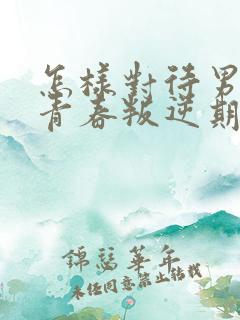 怎樣對待男
青春叛逆期
錦瑟華年
未任同意禁止轉載